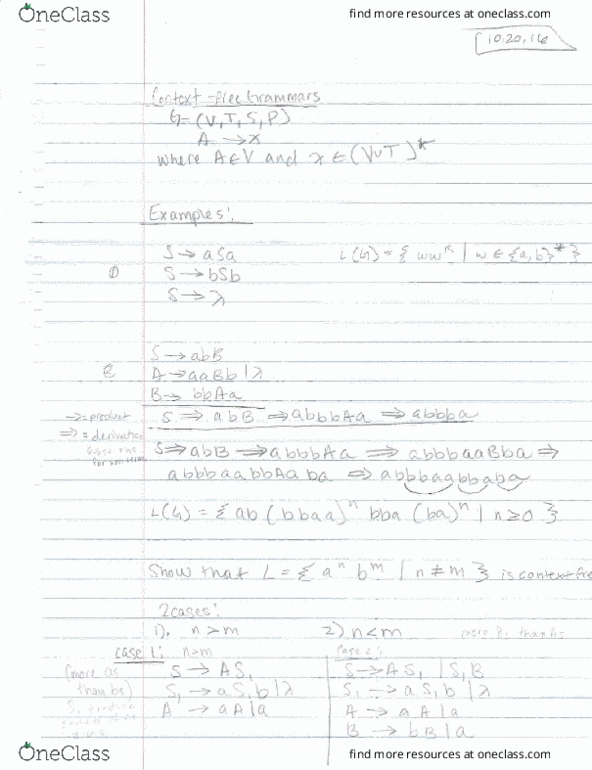 OneClass
find more resources at oneclass.com
10.20.16
Context-free Grammars
G=(V,T,S,P)
A → x
where A∈V and x∈(V∪T)*
Examples:
S→aSa L(G)={ww^R | w∈{a,b}*}
① S→bSb
S→λ
S→abB
② A→aaBb|λ
B→bbAa
→=product S⇒abB⇒abbbAa⇒abbba
⇒=derivation
S⇒abB⇒abbbAa⇒abbbaaBba⇒
abbbaabbAaba⇒abbbaabbaba
L(G)={ab(bbaa)^n bba(ba)^n | n≥0}
Show that L={a^n b^m | n≠m} is context-fre
2cases:
1), n>m 2) n<m more B's than As
case 1: n>m case 2:
(more as S→AS₁ S→AS₁|S₁B
than bs) S₁→aS₁b|λ S₁→aS₁b|λ
A→aA|a A→aA|a
B→bB|a
OneClass
find more resources at oneclass.com